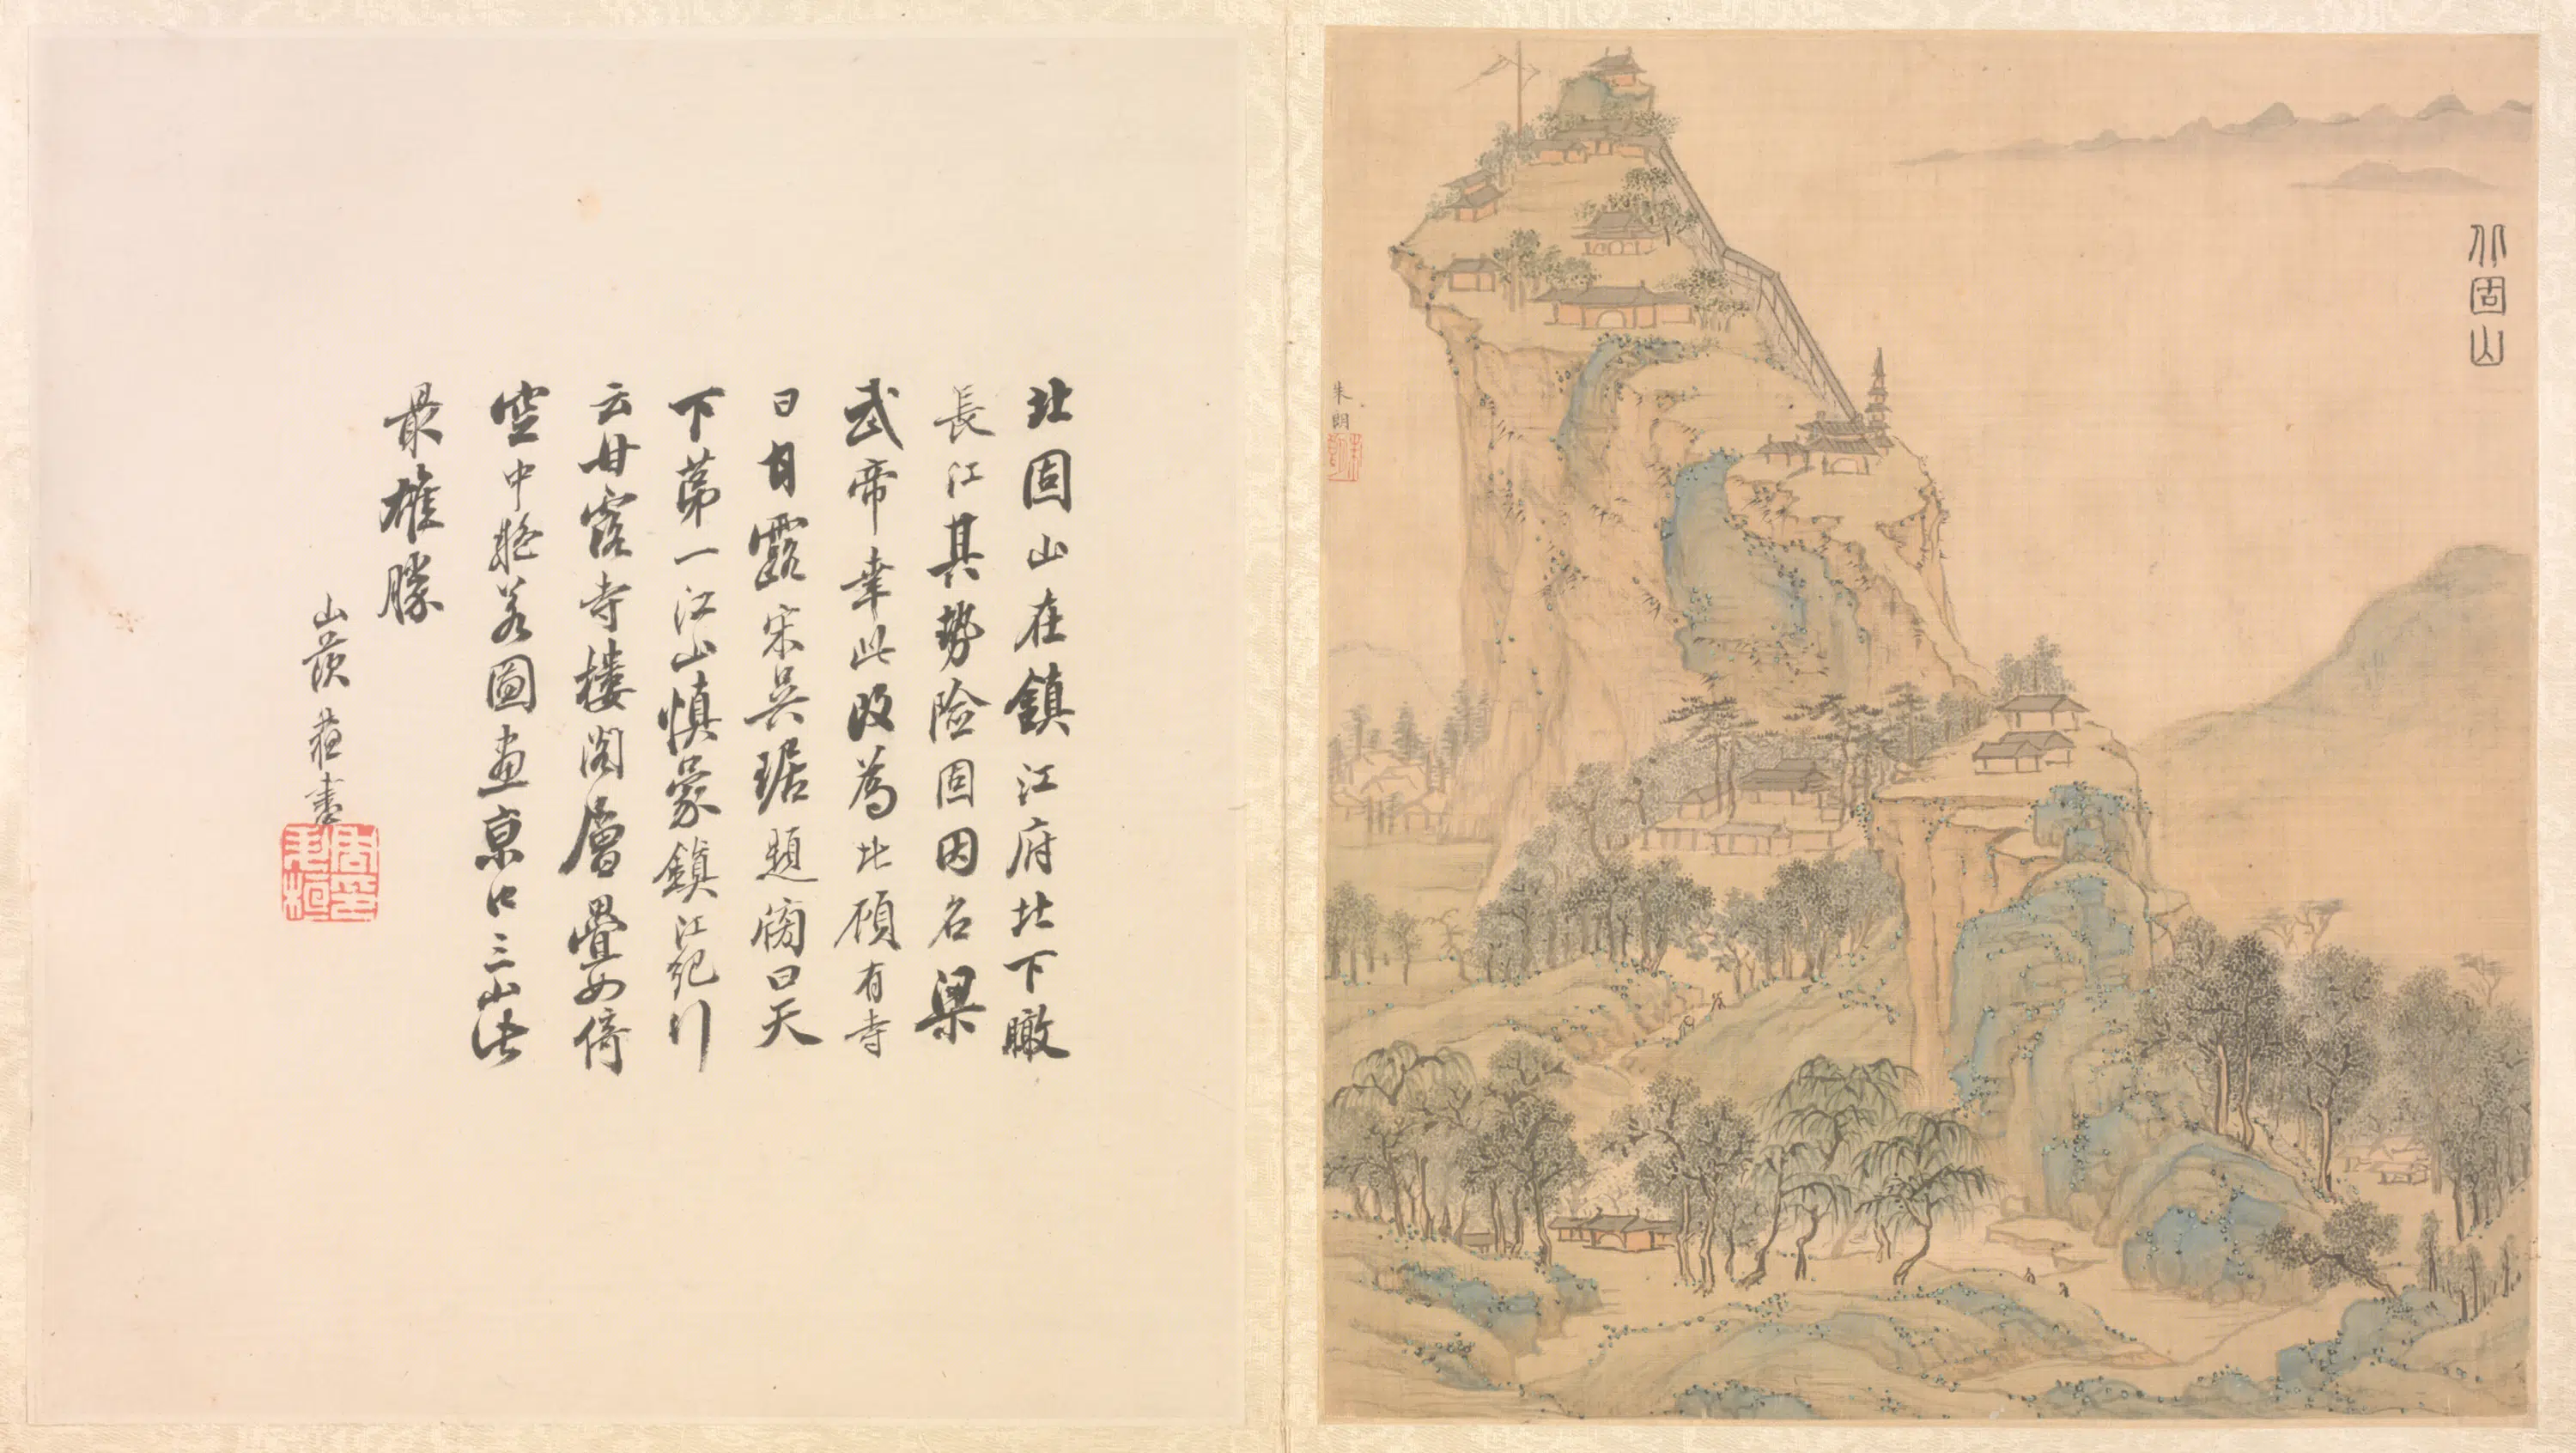 北固山
朱朗
北固山在鎮江府北下瞰
長江其勢險固因名梁
武帝幸此改為北顧有寺
曰甘露宋吳琚題牓曰天
下第一江山慎蒙鎮江紀行
云甘露寺樓閣層疊如倚
空中髣若圖畫京口三山此
最雄勝
山茨莊書